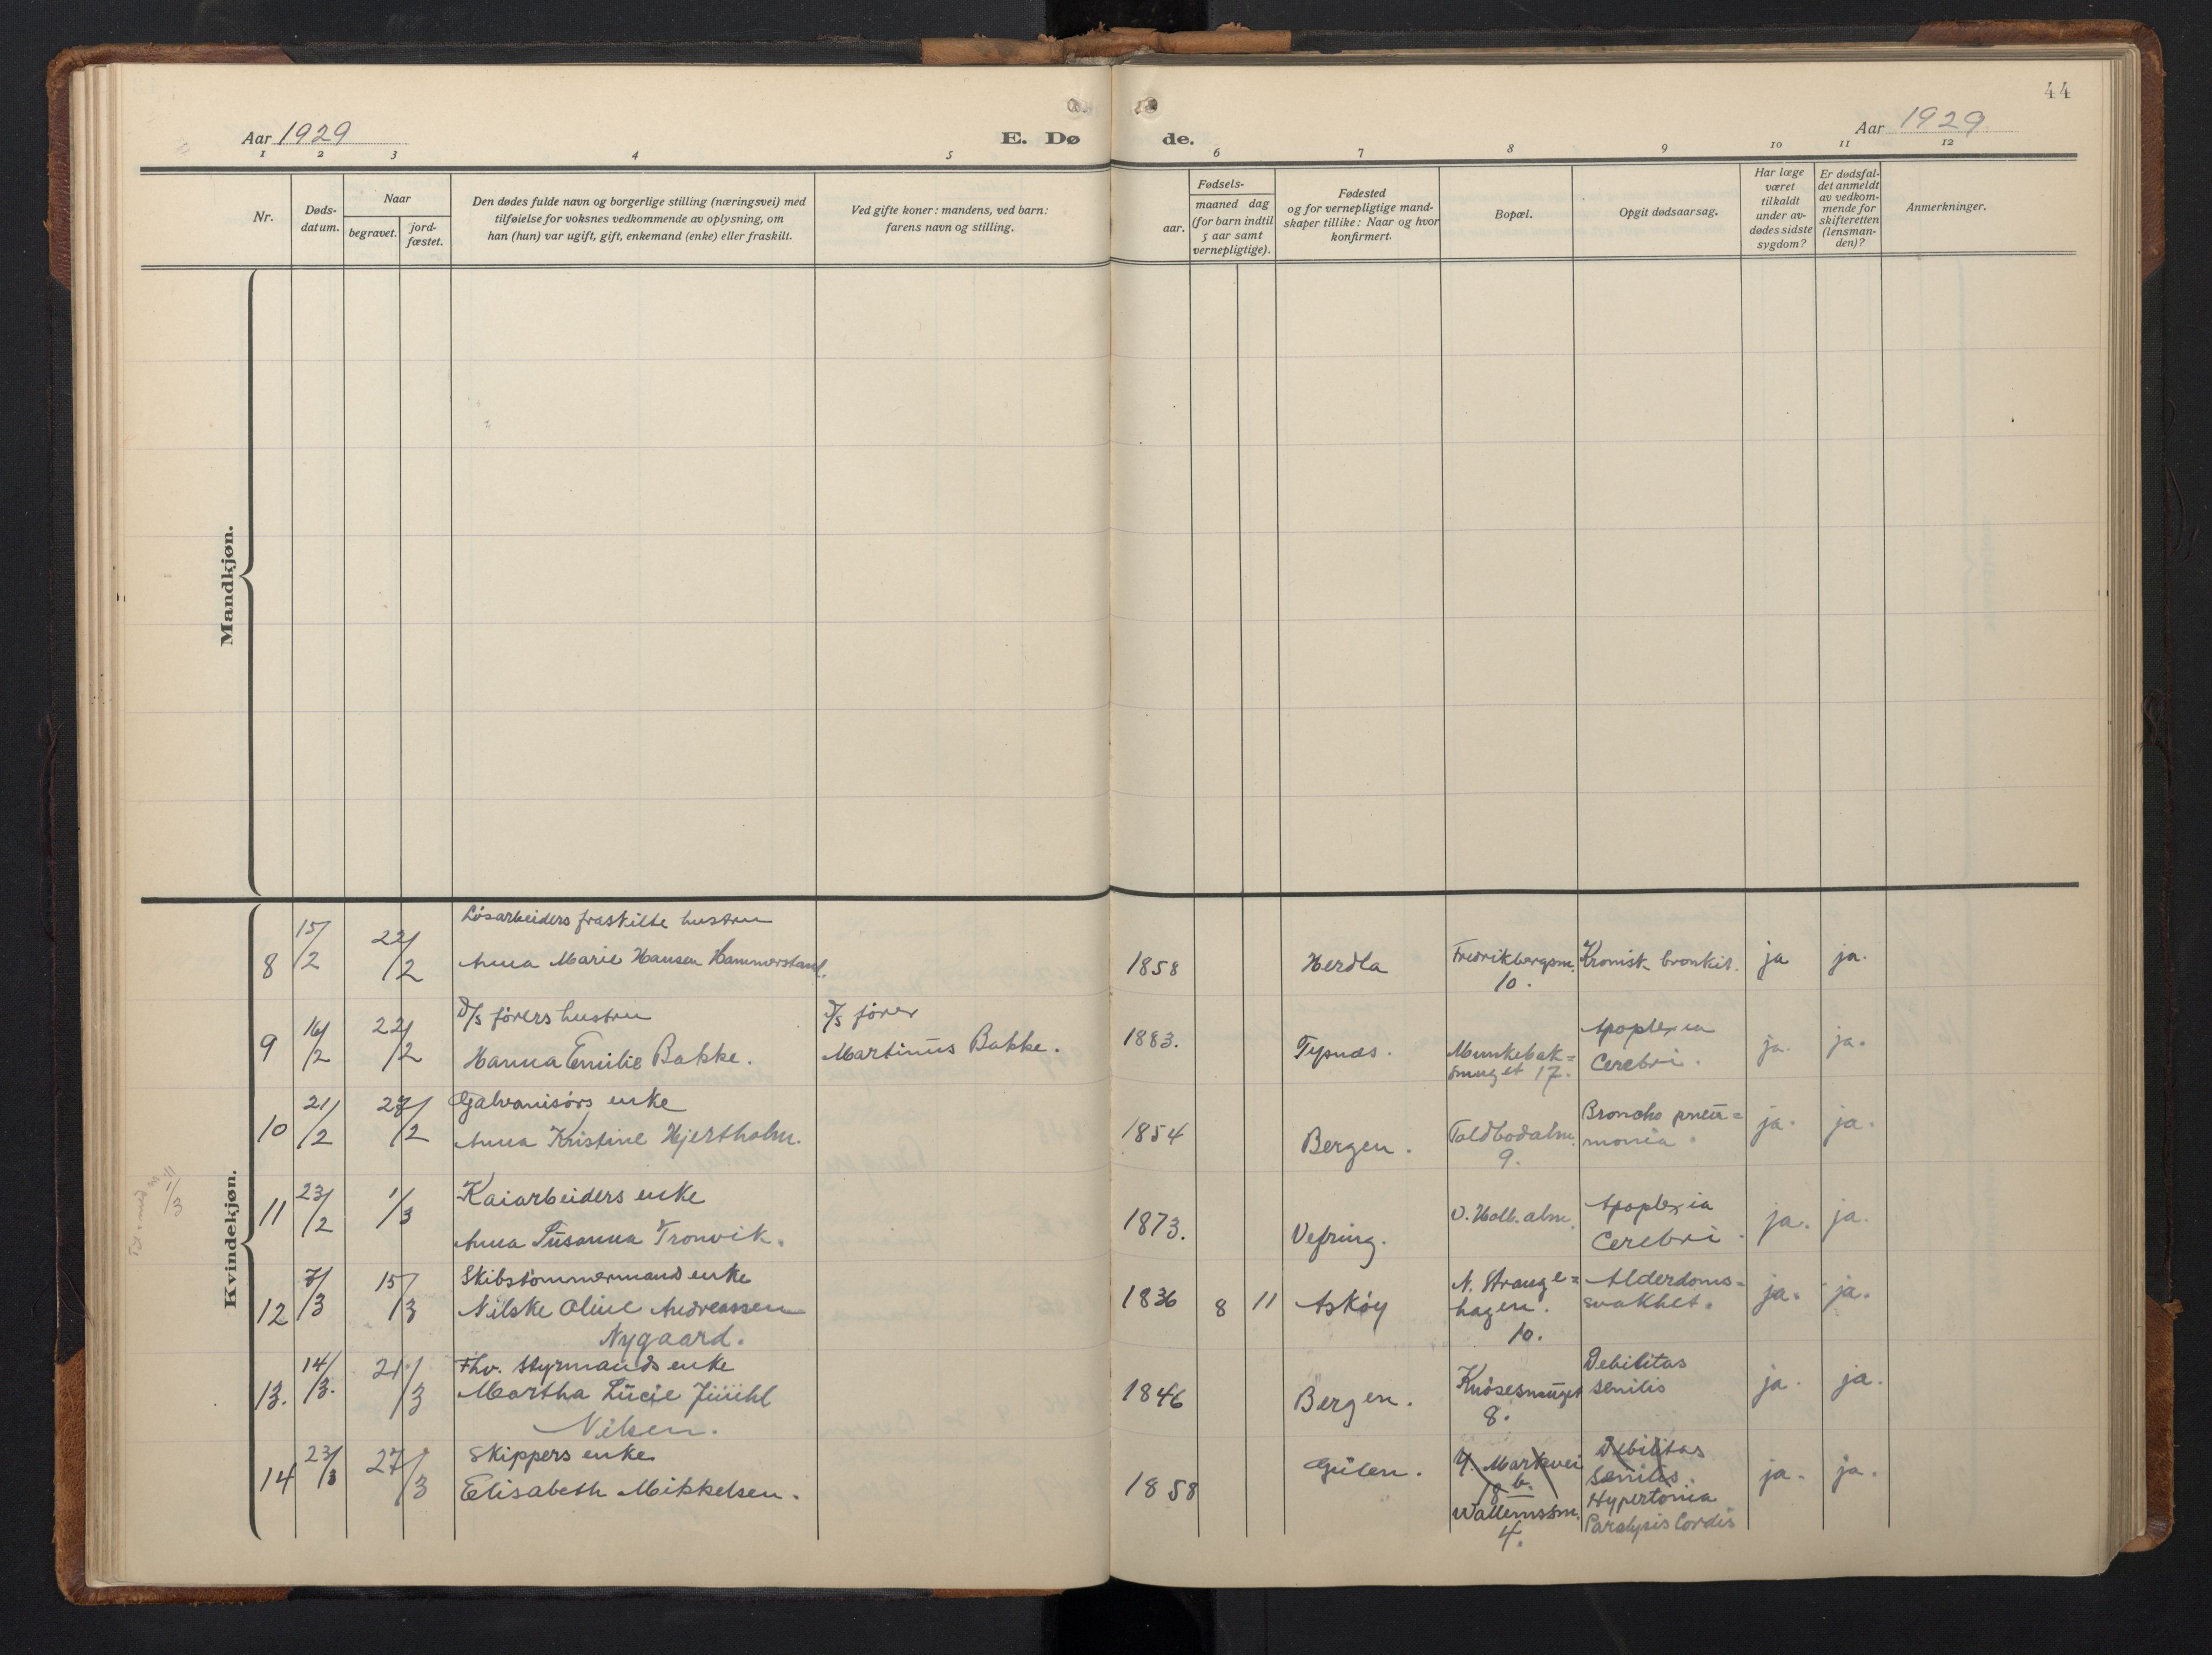 44
Aar 1929
E. Dø
de.
Aar 1929
1 2 3 4 5 6 7 8 9 10 11 12
Nr.
Døds-
datum.
Naar
begravet.
jord-
fæstet.
Den dødes fulde navn og borgerlige stilling (næringsvei) med
tilføielse for voksnes vedkommende av oplysning, om
han (hun) var ugift, gift, enkemand (enke) eller fraskilt.
Ved gifte koner: mandens, ved barn:
farens navn og stilling.
aar.
Fødsels-
maaned dag
(for barn indtil
5 aar samt
vernepligtige).
Fødested
og for vernepligtige mand-
skaper tillike: Naar og hvor
konfirmert.
Bopæl.
Opgit dødsaarsag.
Har læge
været
tilkaldt
under av-
dødes sidste
sygdom?
Er dødsfal-
det anmeldt
av vedkom-
mende for
skifteretten
(lensman-
den)?
Anmerkninger.
Mandkjøn.
Kvindekjøn.
Løsarbeiders fraskilte hustru
8 15/2 22/2 Anna Marie Hansen Hammersland. 1858 Herdla Fredrikbergsm. Kronisk bronkit. ja ja.
10.
D/s førers hustru D/s fører
9 16/2 22/2 Hanna Emilie Bakke. Martinus Bakke. 1883. Tysnes. Munkebak= Apoplexia ja. ja.
smuget 17. Cerebri.
Galvanisørs enke
10 21/2 27/2 Anna Kristine Hjertholm. 1854 Bergen. Toldbodalm. Broncho pneu= ja. ja.
9. monia.
Kaiarbeiders enke
11 23/2 1/3 Anna Susanna Tronvik. 1873. Vefring. V. Holb. alm. Apoplexia ja. ja.
Cerebri.
1/3
Skibstømmermands enke
12 7/3 15/3 Nilske Oline Andreassen 1836 8 11 Askøy N. Strange= Alderdoms= ja. ja.
Nygaard. hagen. svakhet.
10.
Fhv. Styrmands enke
13. 14/3. 21/3 Martha Lucie Jüühl 1846 Bergen. Knøsesmuget Debilitas ja. ja.
Nilsen. 8. senilis
Skippers enke
14 23/3 27/3 Elisabeth Mikkelsen. 1858 Gulen. Y. Markvei Debilitas ja. ja.
18 b. senilis.
Wallemssm. Hypertonia
4. Paralysis Cordis